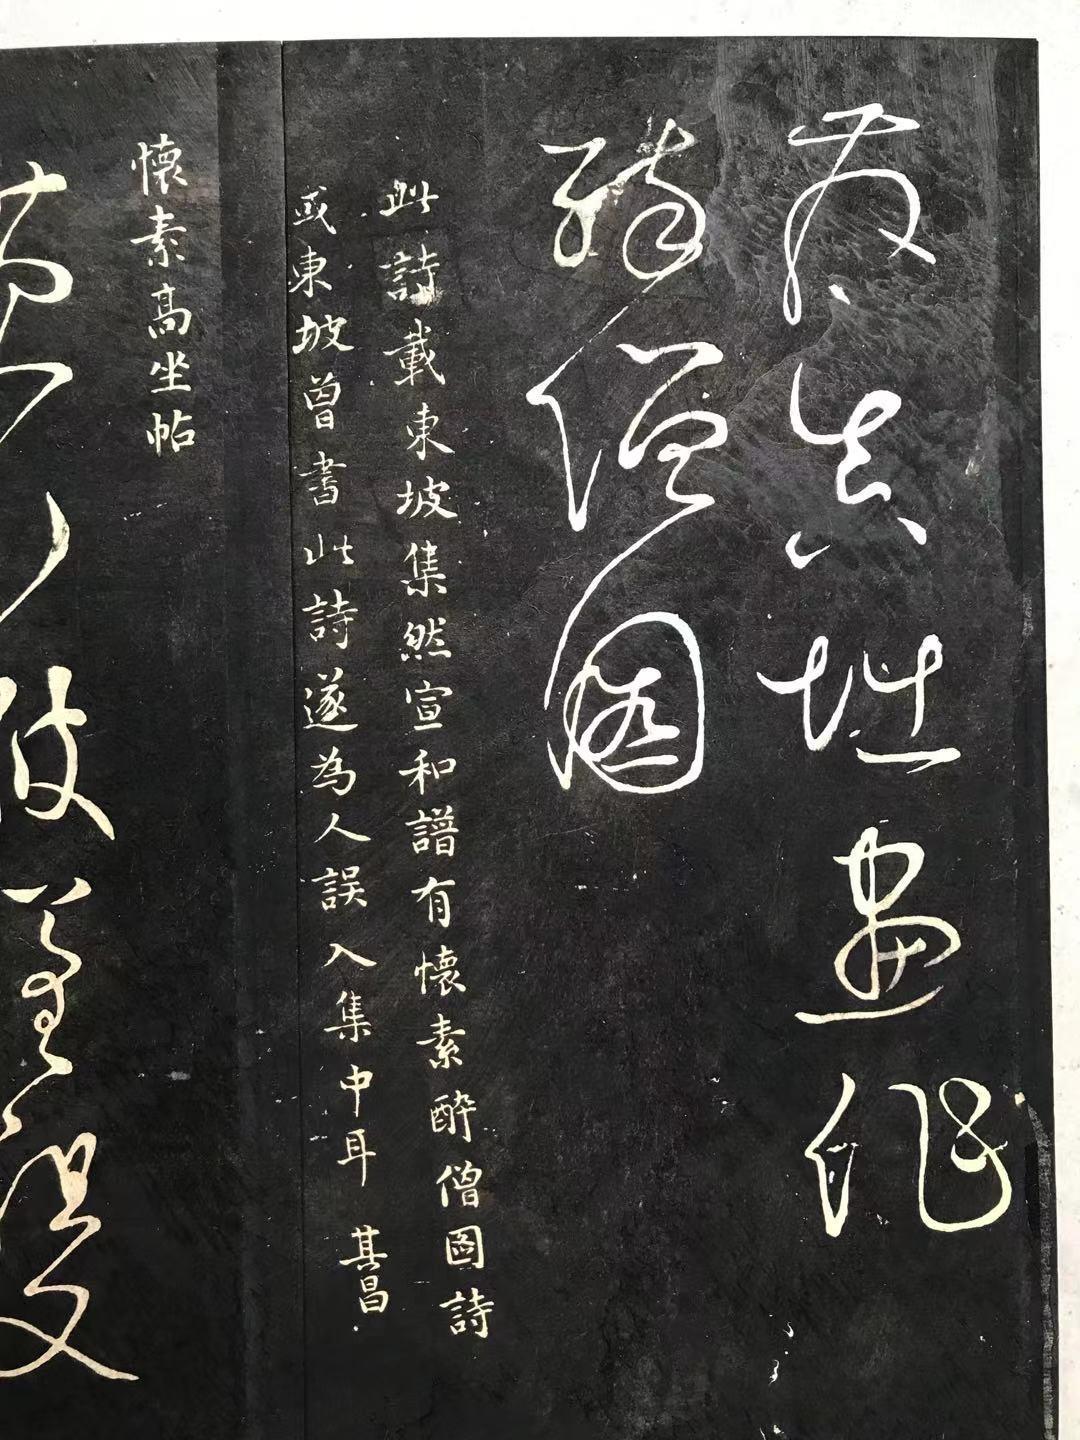 發真堪畫作
醉僧圖
此詩載東坡集然宣和譜有懷素醉僧圖詩
或東坡曾書此詩遂為人誤入集中耳 其昌
懷素高坐帖